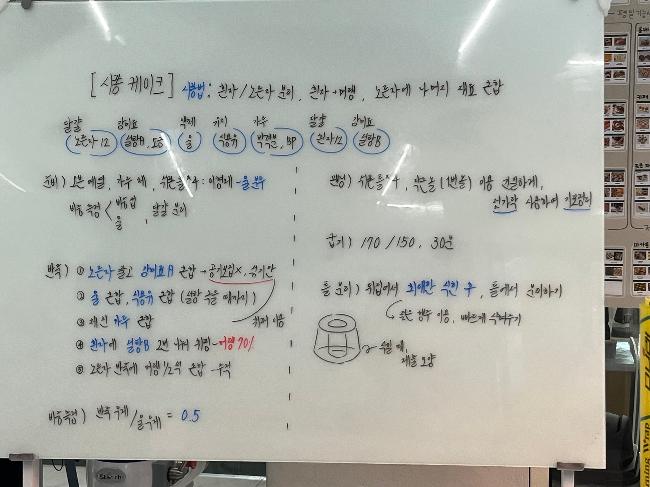 [시퐁 케이크] 시퐁법: 흰자/노른자 분리, 흰자→머랭, 노른자에 나머지 재료 혼합
달걀 감미료 액체 유지 가루 달걀 감미료
노른자12 설탕A, 소금 물 식용유 박력분, BP 흰자12 설탕B
준비) 오븐 예열, 가루 체, 이형제-물 분무
비중측정 < 비중컵 물, 달걀 분리
반죽) ① 노른자 풀고 감미료A 혼합 → 공기포집X, 섞기만
② 물 혼합, 식용유 혼합 (설탕 녹을 때까지)
③ 체친 가루 혼합
휘퍼 이용
④ 흰자에 설탕B 2번 나눠 휘핑-머랭 70%
⑤ 노른자 반죽에 머랭 1/2씩 혼합
비중측정) 반죽무게/물무게 = 0.5
팬닝) 이용 균일하게,
젓가락 사용하여 기포정리
굽기) 170/150, 30분
틀 분리) 뒤집어서 최대한 식힌 후, 틀에서 분리하기
젖은 행주 이용, 빠르게 식혀주기
제출 모양